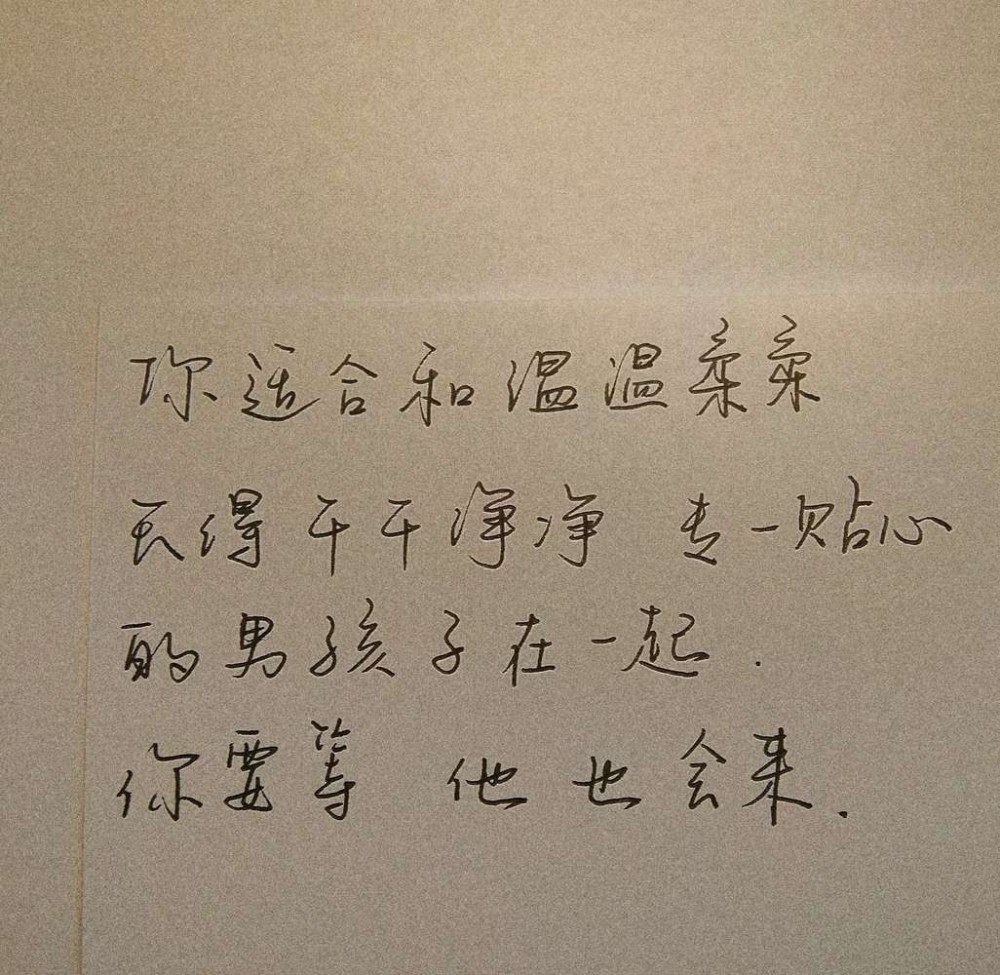 你适合和温温柔柔
长得干干净净 专一贴心
的男孩子在一起.
你要等 他也会来.